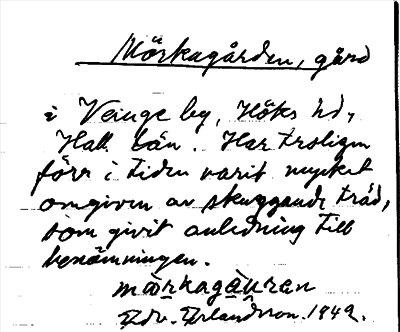 Mörkagården, gård
i Veinge by, Höks hd,
Hall. län. Har troligen
förr i tiden varit mycket
omgiven av skuggande träd,
som givit anledning till
benämningen.
mörkagåɹ̣ran
Edv. Erlandsson. 1942.